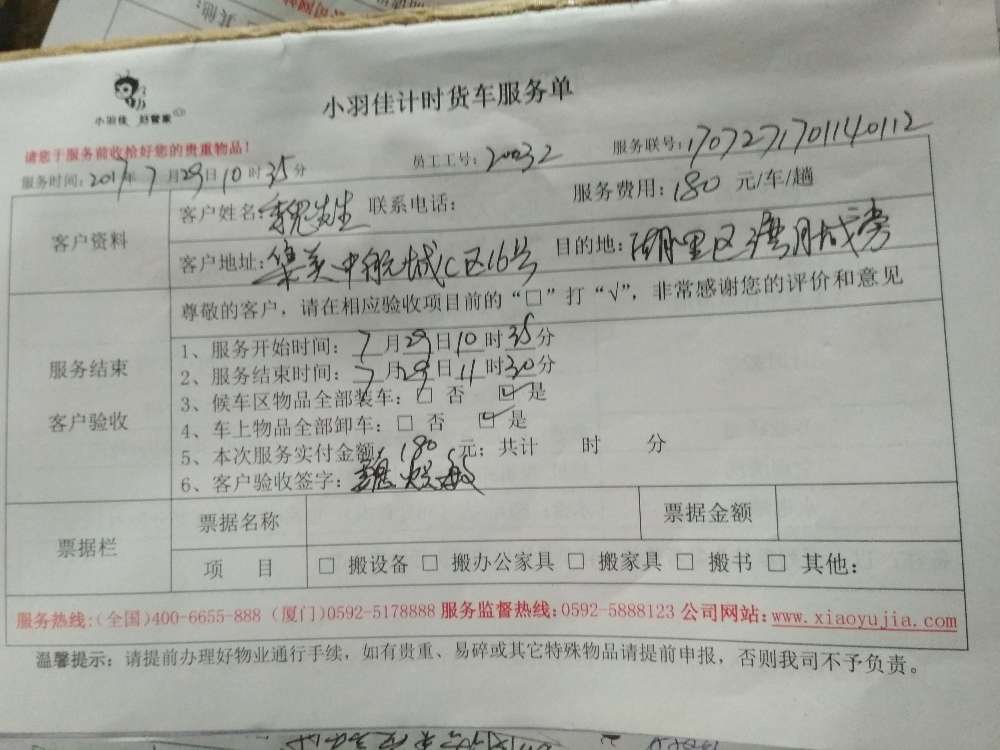 小羽佳计时货车服务单
小羽佳 好管家
请您于服务前收拾好您的贵重物品!
员工工号:20032
服务联号:1707271701140112
服务时间:2017年7月29日10时35分
客户资料
客户姓名:魏先生 联系电话: 服务费用:180 元/车/趟
客户地址:集美中航城C区16号 目的地:湖里区湾月城旁
尊敬的客户,请在相应验收项目前的“□”打“√”,非常感谢您的评价和意见
服务结束
客户验收
1、服务开始时间:7月29日10时35分
2、服务结束时间:7月29日11时30分
3、候车区物品全部装车:□ 否 ☑ 是
4、车上物品全部卸车:□ 否 ☑ 是
5、本次服务实付金额:180 元;共计 时 分
6、客户验收签字:魏
票据栏
票据名称 票据金额
项 目 □ 搬设备 □ 搬办公家具 □ 搬家具 □ 搬书 □ 其他:
服务热线:(全国)400-6655-888 (厦门)0592-5178888 服务监督热线:0592-5888123 公司网站:www.xiaoyujia.com
温馨提示:请提前办理好物业通行手续,如有贵重、易碎或其它特殊物品请提前申报,否则我司不予负责。